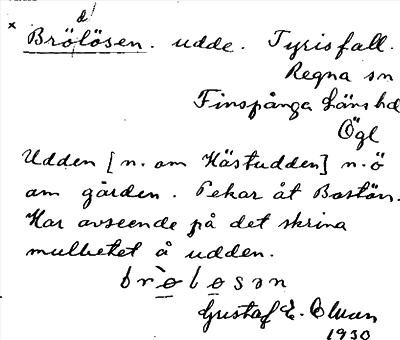 d
× Brölösen. udde. Tyrisfall.
Regna sn
Finspånga läns hd
Ögl
Udden [n. om Hästudden] n. ö
om gården. Pekar åt Bastön.
Har avseende på det skrina
mullhetet å udden.
brøløsən
Gustaf E. Olman
1930